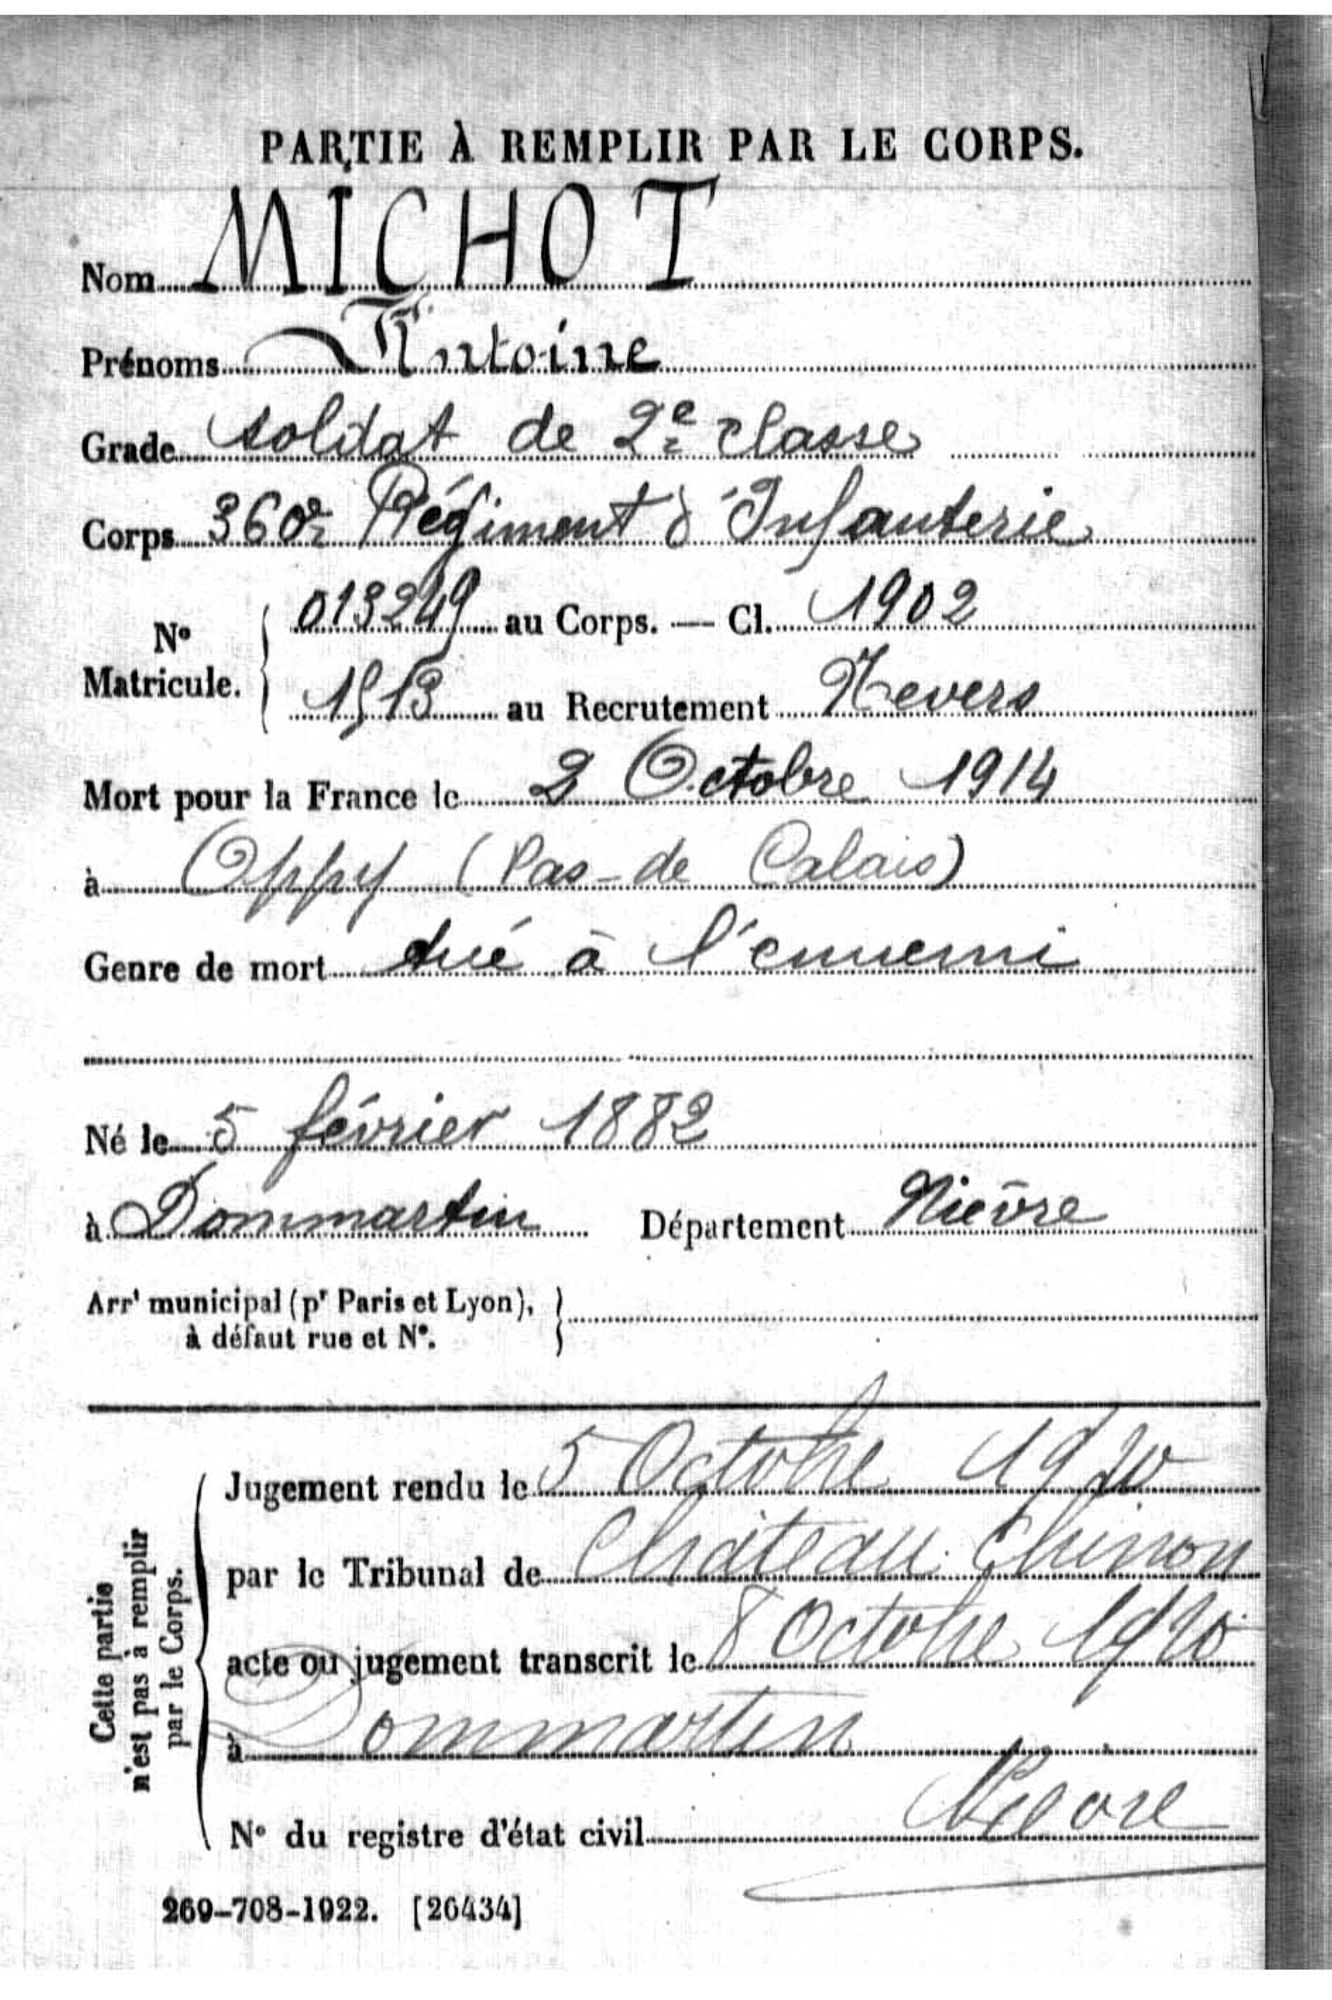 PARTIE À REMPLIR PAR LE CORPS.
Nom MICHOT
Prénoms Antoine
Grade soldat de 2e classe
Corps 360e Régiment d'Infanterie
No Matricule. 013249 au Corps. — Cl. 1902
1513 au Recrutement Nevers
Mort pour la France le 2 Octobre 1914
à Oppy (Pas-de Calais)
Genre de mort tué à l'ennemi
Né le 5 février 1882
à Dommartin Département Nièvre
Arrt municipal (pr Paris et Lyon),
à défaut rue et N°.
Cette partie
n'est pas à remplir
par le Corps.
Jugement rendu le 5 Octobre 1920
par le Tribunal de Château Chinon
acte ou jugement transcrit le 8 Octobre 1920
à Dommartin
N° du registre d'état civil Nièvre
269-708-1922. [26434]